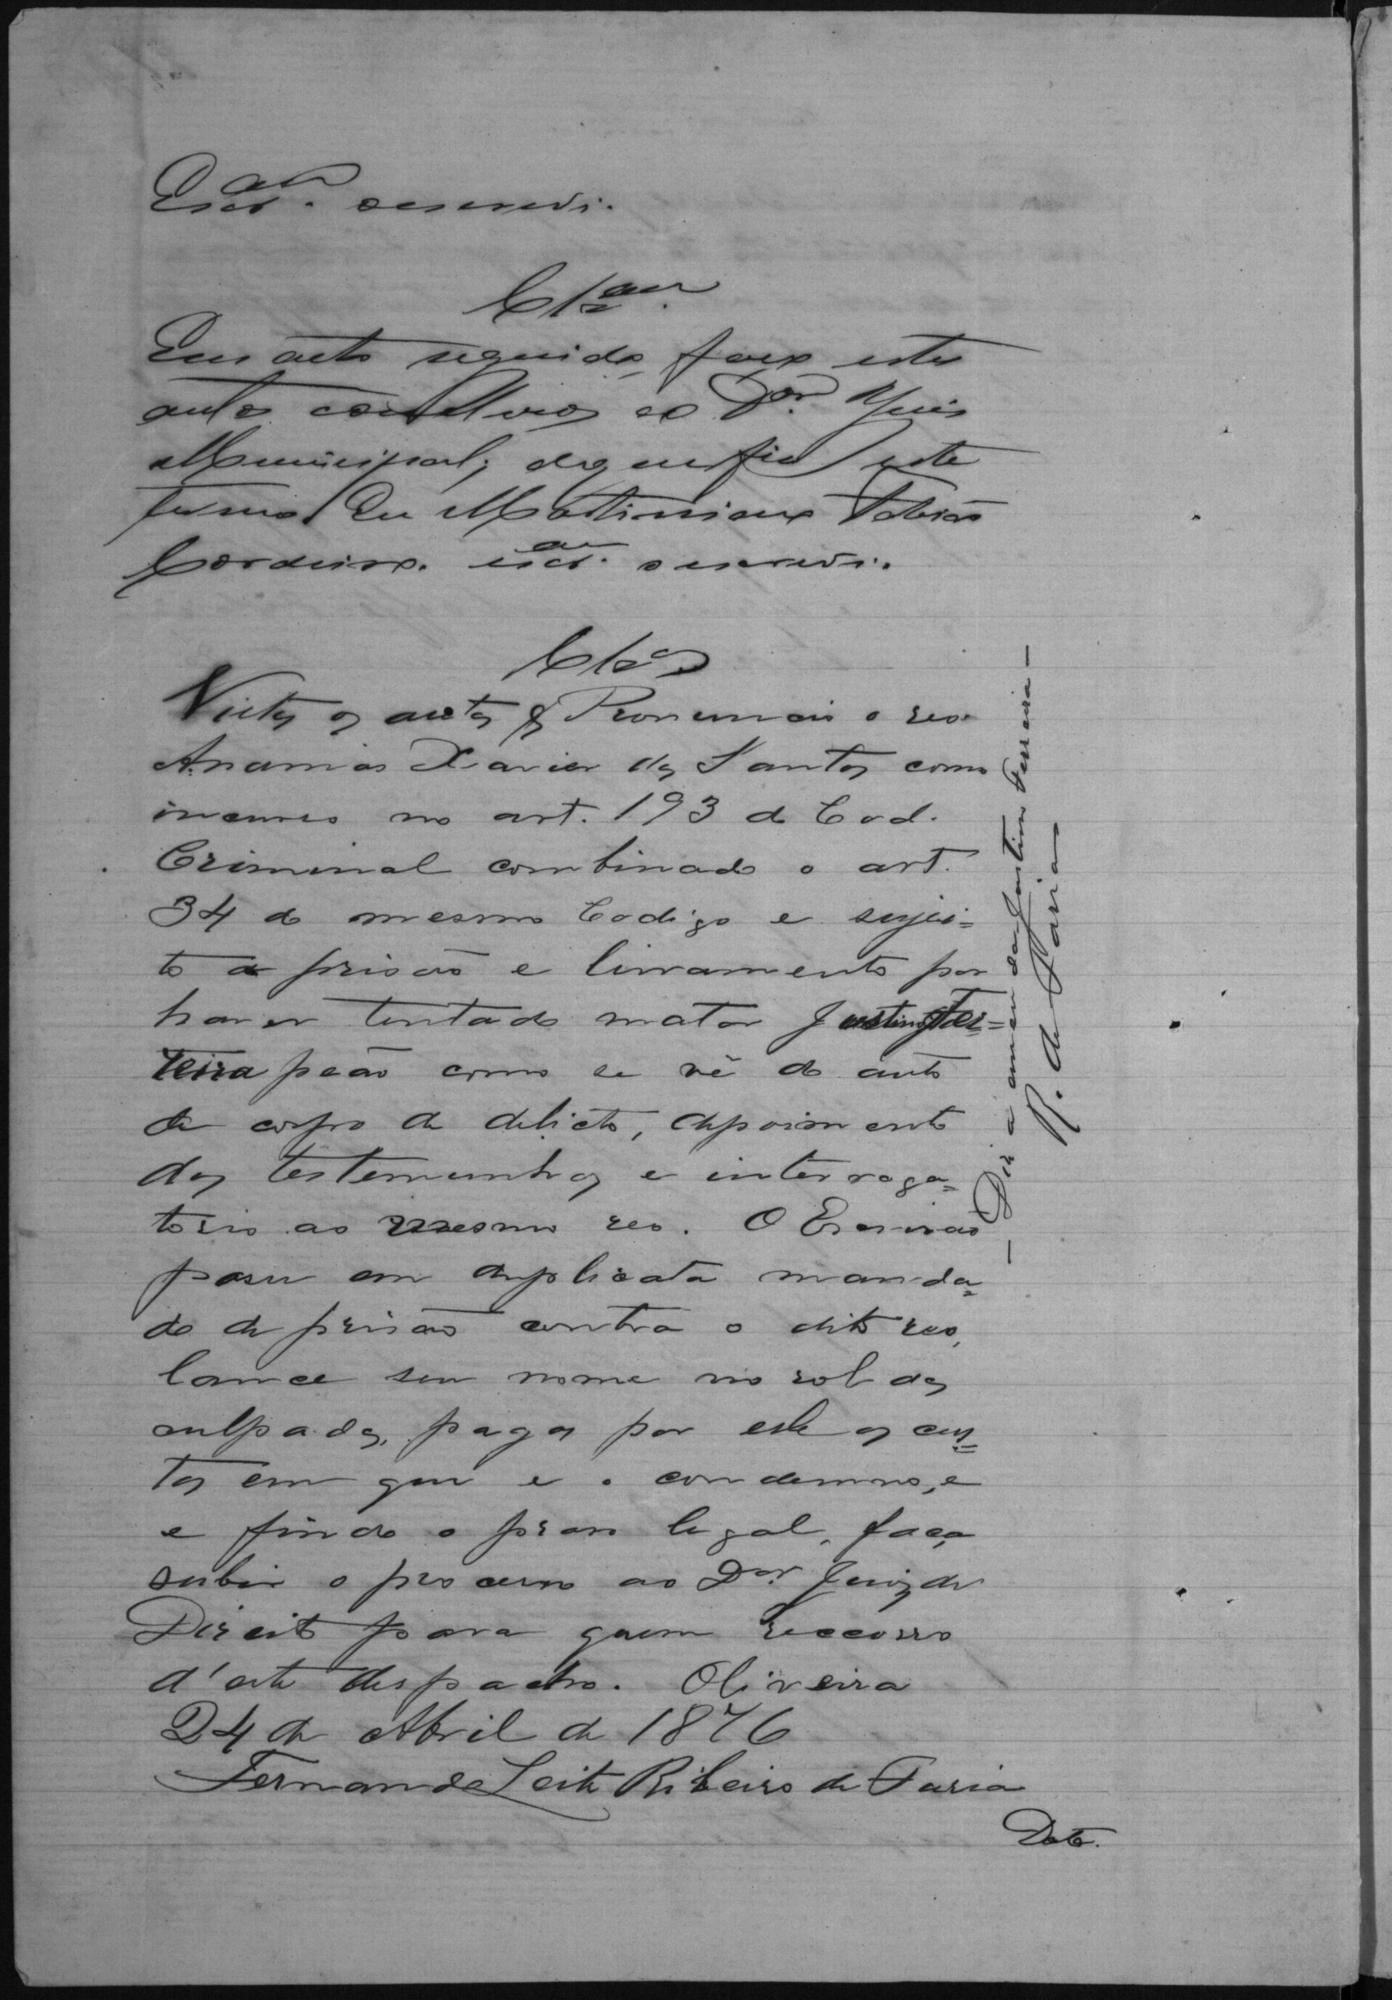 Escr. am o escrevi.
Clz.am
Em acto seguido, faço estes
autos conclusos ao Dor. Juis
Municipal; do que fiz este
termo. Eu Martiniano Tobias
Cordeiro. escr.am o escrevi.
Clzos
Vistos os autos &. Pronuncio o reo
Ananias Xavier dos Santos como
incurso no art. 193 do Cod.
Criminal combinado o art.
34 do mesmo Codigo e sujei=
to a prisão e livramento por
haver tentado matar Justino Fer=
reira peão como se vê do auto
de corpo de delicto, depoimento
das testemunhas e interroga=
torio ao mesmo reo. O Escrivão
passe em duplicata manda=
do de prisão contra o dito reo,
lance seu nome no rol dos
culpados, pagas por este as cus=
tas em que o condemno, e
e findo o praso legal, faça
subir o processo ao Dor. Juiz de
Direito para quem reccorro
d'este despacho. Oliveira
24 de Abril de 1876
Fernando Leite Ribeiro de Faria
Data.
— Diz a emenda Justino Ferreira —
R. de Faria